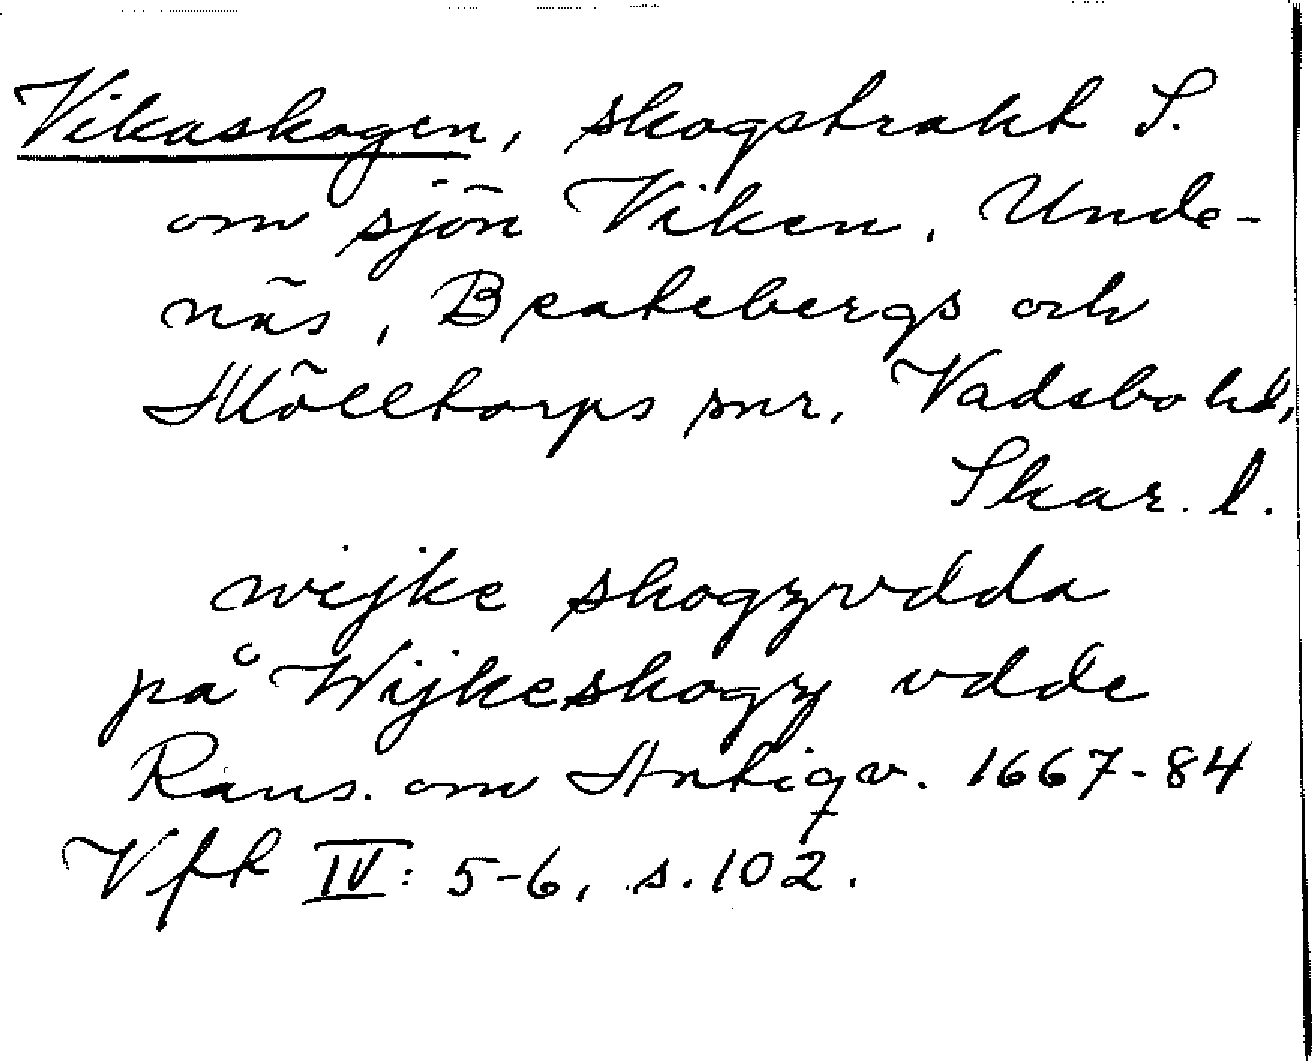 Vikaskogen, skogstrakt S.
om sjön Viken. Unde-
näs, Beatebergs och
Mölltorps snr, Vadsbo hd,
Skar. l.
wijke skogzvdda
på Wijkeskogz vdde
Rans. om Antiqv. 1667-84
Vfk IV: 5-6, s. 102.